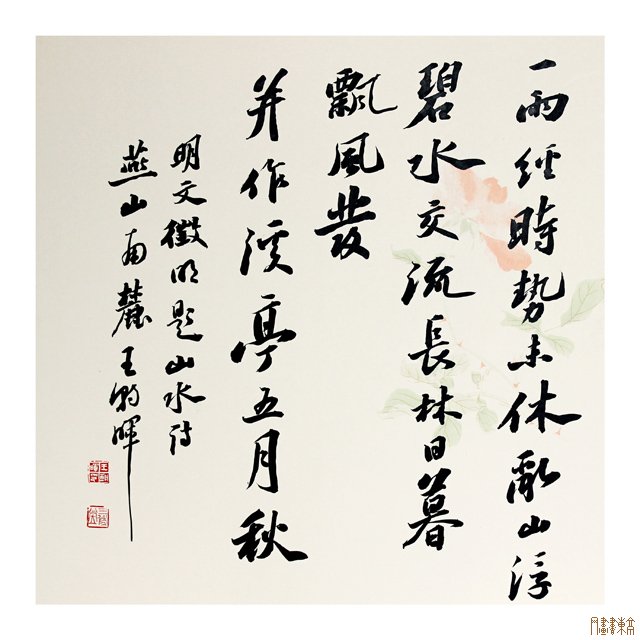 一雨經時勢未休亂山浮
碧水交流長林日暮
飄風發
并作溪亭五月秋
明文徵明題山水詩
燕山南麓王暉